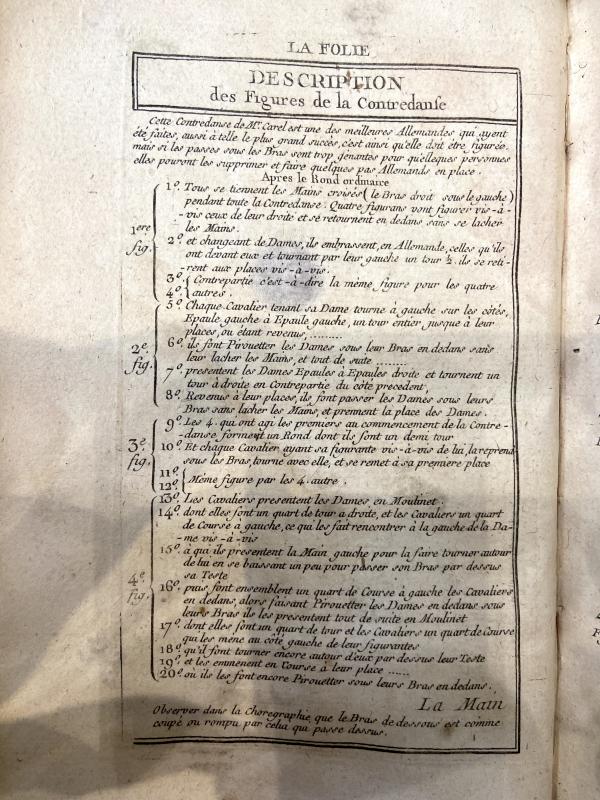 LA FOLIE
DESCRIPTION
des Figures de la Contredanse
Cette Contredanse de Mr. Carel est une des meilleures Allemandes qui ayent
été faites, aussi à t'elle le plus grand succès, c'est ainsi qu'elle doit être figurée.
mais si les passes sous les Bras sont trop gênantes pour qu'elleques personnes
elles pouront les supprimer et faire quelques pas Allemands en place.
Après le Rond ordinaire
1o. Tous se tiennent les Mains croisés (le Bras droit sous le gauche)
pendant toute la Contredanse. Quatre figurans vont figurer vis-à-
-vis ceux de leur droite et se retournent en dedans sans se lacher
les Mains.
1ere fig.
2o. et changeant de Dames, ils embrassent, en Allemande, celles qu'ils
ont devant eux et tournant par leur gauche un tour ½. ils se reti-
rent aux places vis-à-vis.
3o. Contrepartie c'est-à-dire la même figure pour les quatre
4o. autres.
5o. Chaque Cavalier tenant sa Dame tourne à gauche sur les côtés,
Epaule gauche à Epaule gauche, un tour entier, jusque à leur
places, ou étant revenus, ........
2e. fig.
6o. ils font Pirouetter les Dames sous leur Bras en dedans sans
leur lacher les Mains, et tout de suite ........
7o. presentent les Dames Epaules à Epaules droite et tournent un
tour à droite en Contrepartie du côté precedent,
8o. Revenus à leur places, ils font passer les Dames sous leurs
Bras sans lacher les Mains, et prennent la place des Dames.
9o. Les 4. qui ont agi les premiers au commencement de la Contre-
-danse, forment un Rond dont ils font un demi tour
3e. fig.
10o. Et chaque Cavalier ayant sa figurante vis-à-vis de lui, la reprend
sous les Bras, tourne avec elle, et se remet à sa premiere place
11o.
12o. Même figure par les 4. autre.
13o. Les Cavaliers presentent les Dames en Moulinet.
14o. dont elles font un quart de tour a droite, et les Cavaliers un quart
de Course à gauche, ce qui les fait rencontrer à la gauche de la Da-
-me vis-à-vis
15o. à qui ils presentent la Main gauche pour la faire tourner autour
de lui en se baissant un peu pour passer son Bras par dessus
sa Teste
4e. fig.
16o. puis, font ensemblent un quart de Course à gauche les Cavaliers
en dedans, alors faisant Pirouetter les Dames en dedans sous
leurs Bras ils les presentent tout de suite en Moulinet
17o. dont elles font un quart de tour et les Cavaliers un quart de Course
qui les mène au côté gauche de leur figurantes
18o. qu'il font tourner encore autour d'eux par dessus leur Teste
19o. et les emmenent en Course à leur place ......
20o. où ils les font encore Pirouetter sous leurs Bras en dedans.
La Main
Observer dans la Choregraphie, que le Bras de dessous est comme
coupé ou rompu par celui qui passe dessus.